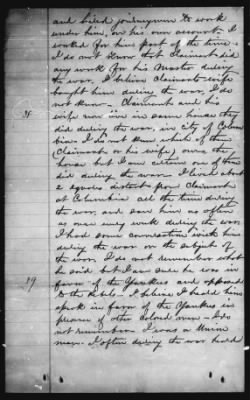 and hired journeymen to work
under him, on his own account. I
worked for him part of the time.
I do not know that Claimant did
any work for his Master during
the war. I believe Claimants wife
bought him during the war, I do
not know. Claimant and his
wife now own in same house they
did during the war, in City of Colum
bia. I do not know which of them
(Claimant or his wife) owns the
house but I am certain one of them
did during the war. I lived about
2 squares distant from Claimant
at Columbia all the time during
the war, and saw him as often
as once every week during the war.
I had some conversation with him
during the war on the subject of
the war. I do not remember what
he said but I am sure he was in
favor of the Yankees and opposed
to the Rebels. I believe I heard him
speak in favor of the Yankees in
presence of other Colored men. I do
not remember. I was a Union
man. I often during the war heard